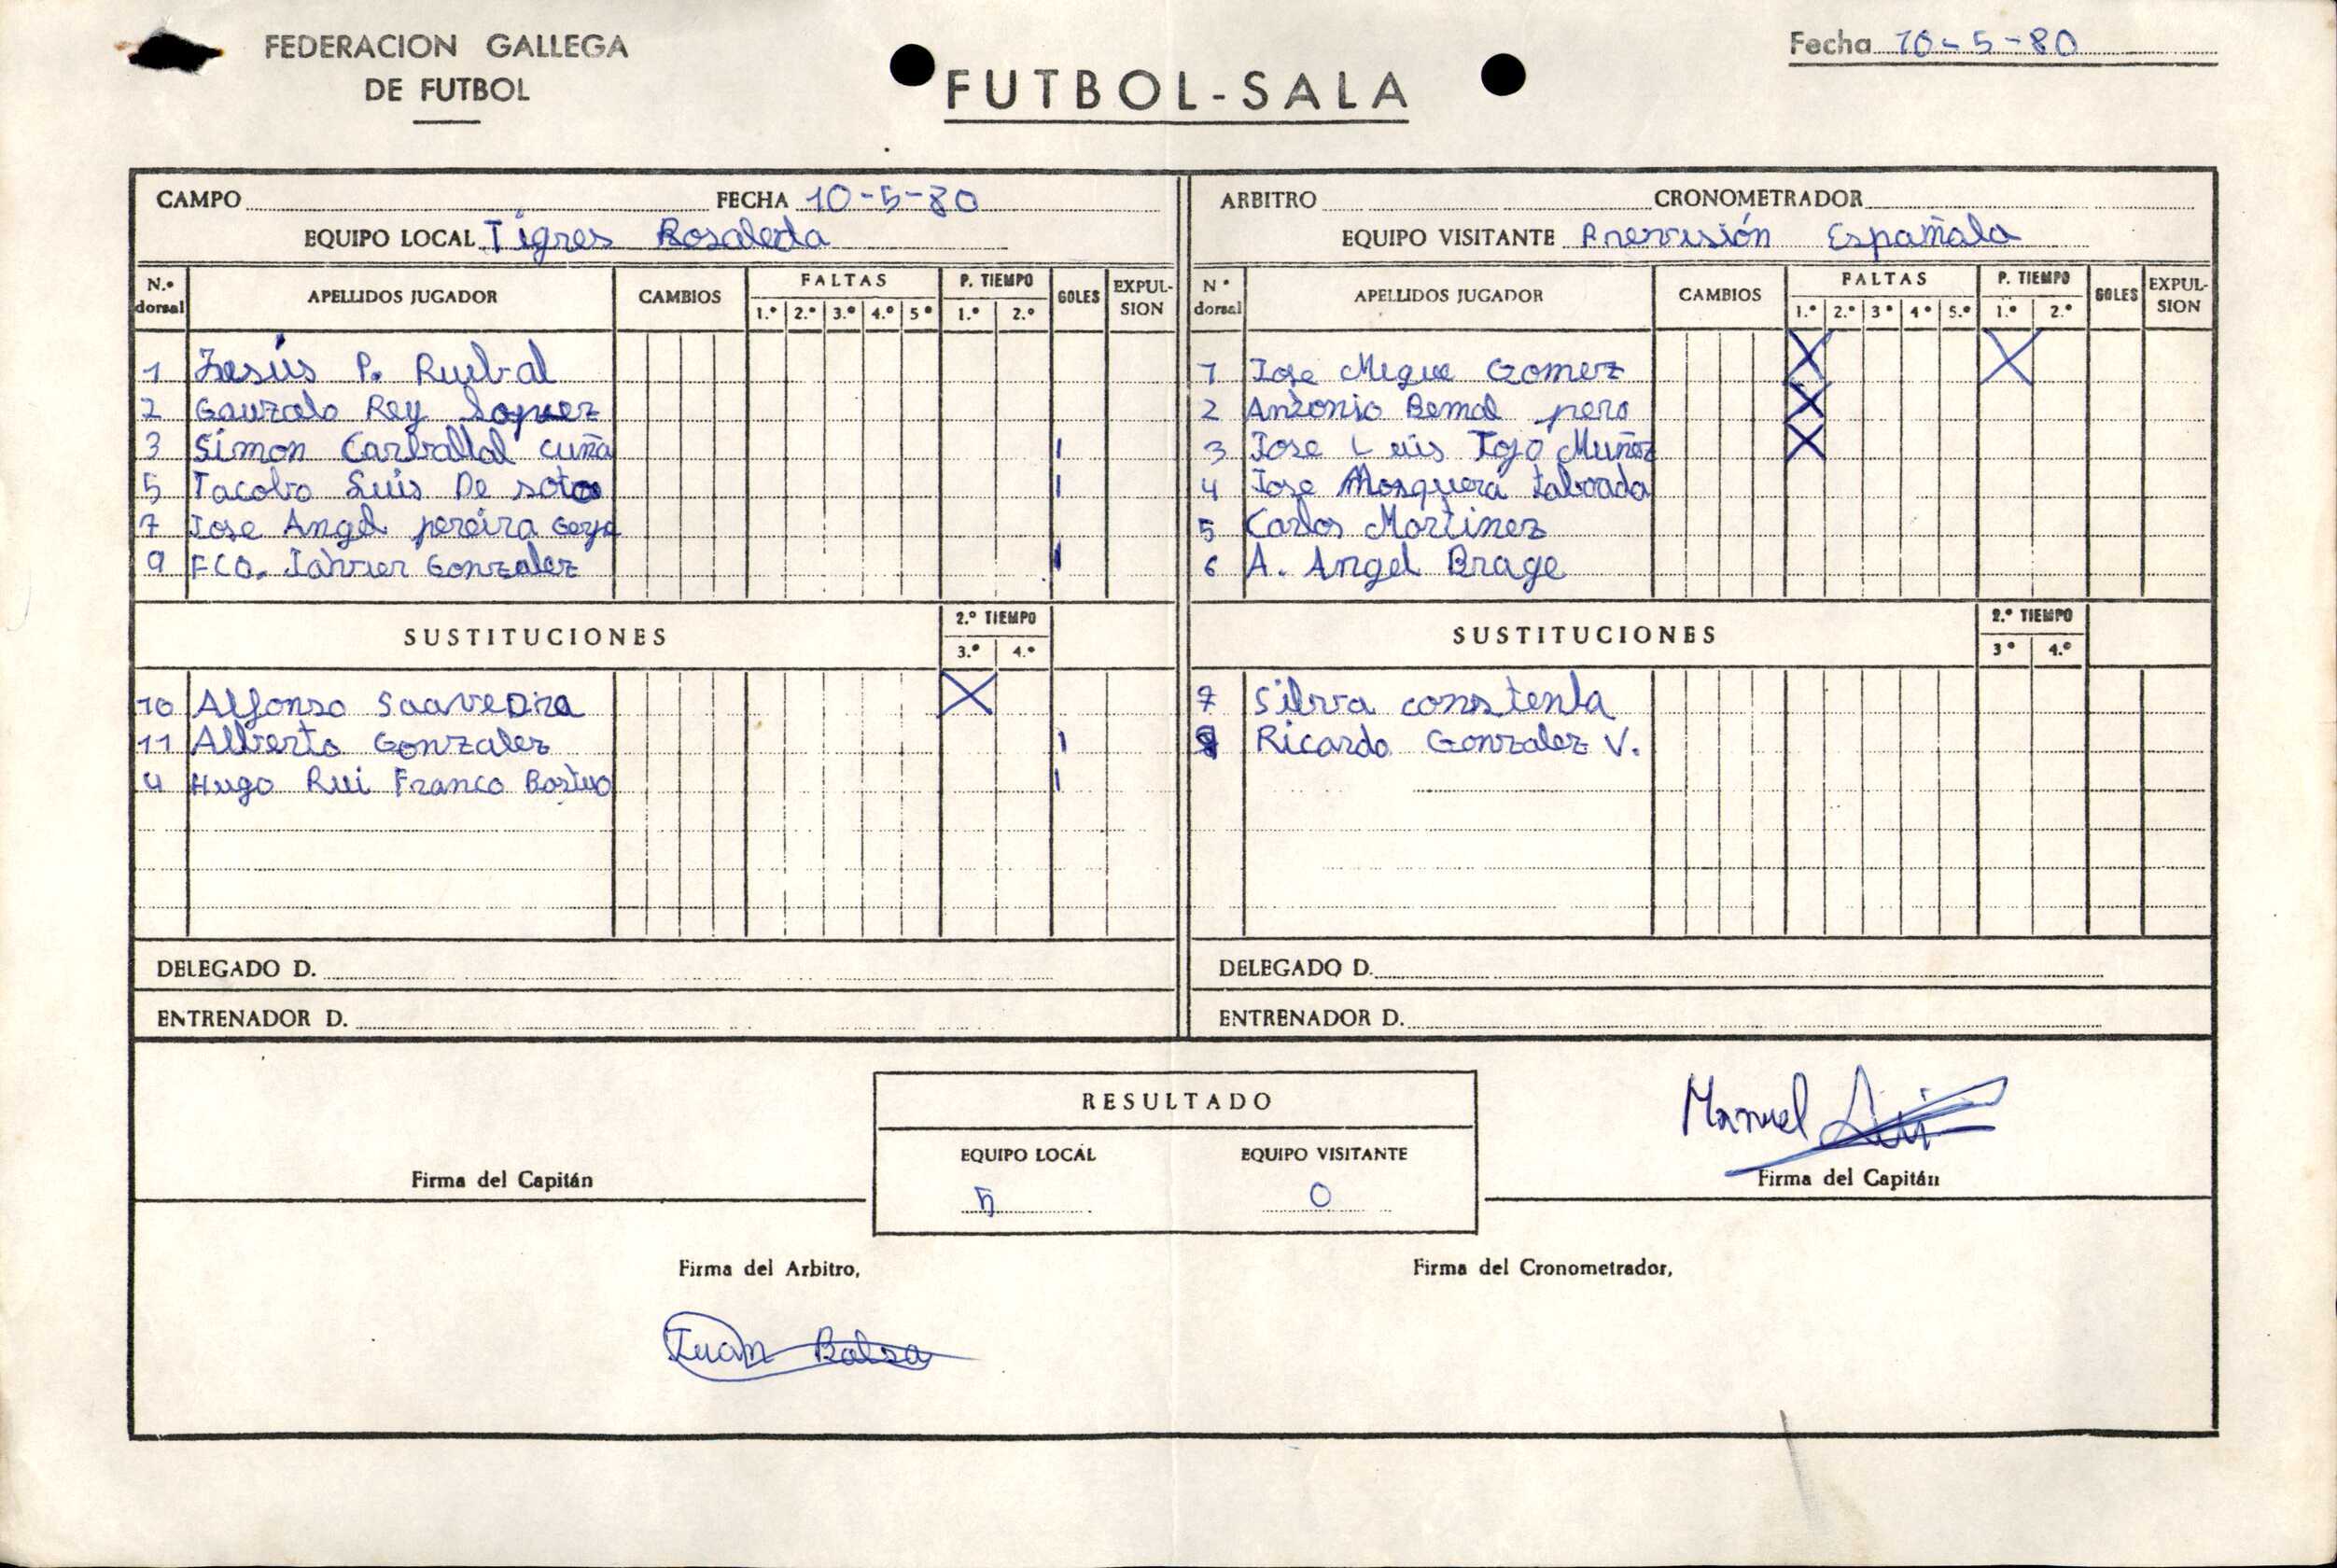 FEDERACION GALLEGA
DE FUTBOL
FUTBOL-SALA
Fecha 10-5-80
CAMPO FECHA 10-5-80
EQUIPO LOCAL Tigres Rosaleda
N.º dorsal APELLIDOS JUGADOR CAMBIOS FALTAS P. TIEMPO GOLES EXPULSION
1.º 2.º 3.º 4.º 5º 1.º 2.º
1 Jesús P. Rubal
2 Gonzalo Rey Lopez
3 Simon Carballal cuña 1
5 Jacobo Luis De soto 1
7 Jose Angel pereira
9 FCO. Javier Gonzalez 1
SUSTITUCIONES 2.º TIEMPO
3.º 4.º
10 Alfonso SaaveDra X
11 Alberto Gonzalez 1
4 Hugo Rui Franco 1
DELEGADO D.
ENTRENADOR D.
ARBITRO CRONOMETRADOR
EQUIPO VISITANTE Prevision Española
Nº dorsal APELLIDOS JUGADOR CAMBIOS FALTAS P. TIEMPO GOLES EXPULSION
1.º 2.º 3º 4º 5.º 1.º 2.º
1 Jose Migue Gomez X X
2 Antonio Bernal pero X
3 Jose Luis Tojo Muñoz X
4 Jose Mosquera taboada
5 Carlos Martinez
6 A. Angel Brage
SUSTITUCIONES 2.º TIEMPO
3º 4.º
7 Silva constenla
Ricardo Gonzalez V.
DELEGADO D.
ENTRENADOR D.
RESULTADO
EQUIPO LOCAL EQUIPO VISITANTE
5 0
Firma del Capitán
Manuel
Firma del Capitán
Firma del Arbitro,
Juan Balsa
Firma del Cronometrador,